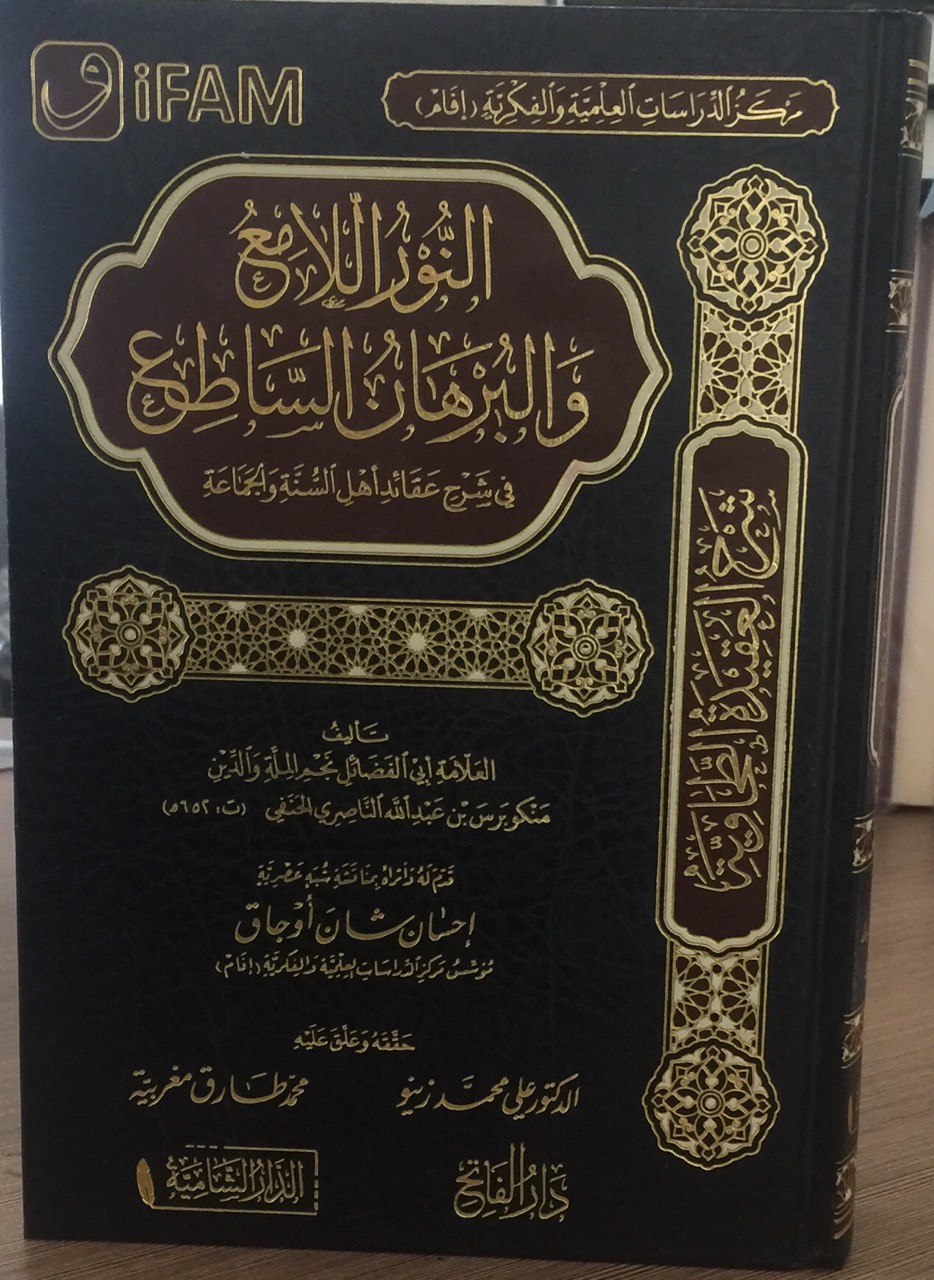 iFAM
مَركَزُ الدِّرَاسَاتِ العِلْمِيَّةِ وَالفِكْرِيَّةِ (إِفَام)
النُّورُ اللَّامِعُ
وَالبُرْهَانُ السَّاطِعُ
فِي شَرْحِ عَقَائِدِ أَهْلِ السُّنَّةِ وَالجَمَاعَةِ
شَرْحُ العَقِيدَةِ الطَّحَاوِيَّةِ
تَأليفُ
العَلَّامَةِ أَبِي الفَضَائِلِ نَجْمِ المِلَّةِ وَالدِّيْنِ
مَنْكُوبَرَس بْنِ عَبْدِ اللَّه النَّاصِرِي الحَنَفِي (ت: ٦٥٢ه)
قَدَّمَ لَهُ وَأثرَاهُ بِمُنَاقَشَةِ شُبَهٍ عَصْرِيَّةٍ
إحسَان شَان أوْجَاق
مُؤَسِّسُ مَركَزِ الدِّرَاسَاتِ العِلْمِيَّةِ وَالفِكْرِيَّةِ (إِفَام)
حَقَّقَهُ وَعَلَّقَ عَلَيْهِ
الدكتور علي محمَّد زينو
محمَّد طَارق مغربيَّة
دَارُ الفَاتِح
الدَّارُ الشَّامِيَّةُ